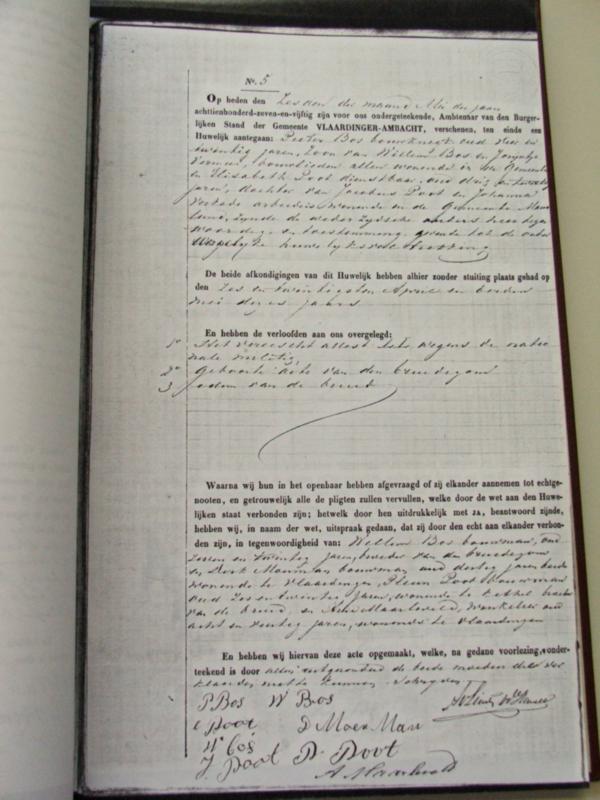 No. 5
Op heden den Zesden der maand Mei des jaars
achttienhonderd-zeven-en-vijftig zijn voor ons ondergeteekende, Ambtenaar van den Burger-
lijken Stand der Gemeente VLAARDINGER-AMBACHT, verschenen, ten einde een
Huwelijk aantegaan: Pieter Bos bouwknecht oud vier en
twintig jaren, Zoon van Willem Bos en
bouwlieden allen wonende in de Gemeente
en Elisabeth Poot dienstbaar, oud drie en twintig
jaren, dochter van Jacobus Poot en Johanna
arbeiders wonende in de Gemeente
zijnde de weder zijdsche ouders hier tegen
woordig en toestemming gevende tot de
huwelijks
De beide afkondigingen van dit Huwelijk hebben alhier zonder stuiting plaats gehad op
den Zes en twintigsten April en derden
mei dezes jaars
En hebben de verloofden aan ons overgelegd:
1o Het vereischt attest wegens de natio
nale militie,
2o Geboorte acte van den bruidegom
3 idem van de bruid
Waarna wij hun in het openbaar hebben afgevraagd of zij elkander aannemen tot echtge-
nooten, en getrouwelijk alle de pligten zullen vervullen, welke door de wet aan den Huwe-
lijken staat verbonden zijn; hetwelk door hen uitdrukkelijk met JA, beantwoord zijnde,
hebben wij, in naam der wet, uitspraak gedaan, dat zij door den echt aan elkander verbon-
den zijn, in tegenwoordigheid van: Willem Bos bouwman, oud
en twintig jaren, broeder van den bruidegom
en bouwman oud dertig jaren beide
wonende te Vlaardingen, Pleun Poot bouwman
oud Zes en twintig jaren, wonende te Kethel broeder
van de bruid, en Arie Maarleveld, winkelier oud
acht en twintig jaren, wonende te Vlaardingen
En hebben wij hiervan deze acte opgemaakt, welke, na gedane voorlezing, onder-
teekend is door allen uitgezonderd de beide moeders die ver
klaarden niet te kunnen schrijven
P Bos W Bos
E Poot
W Bos P. Poot
J. Poot A. Maarleveld